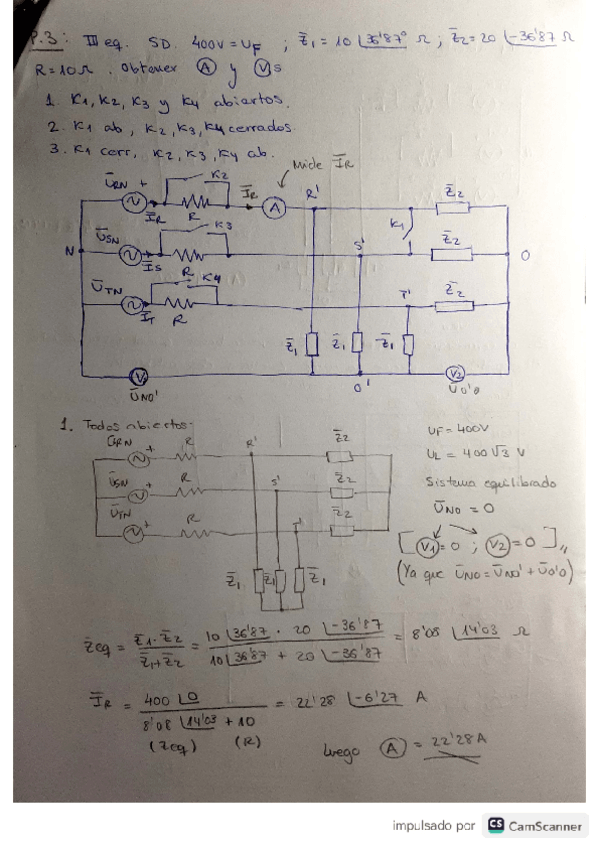 P.3: III eq. SD. 400V = UF ; Z̄1 = 10 ∠36'87° Ω ; Z̄2 = 20 ∠-36'87 Ω
R = 10 Ω. Obtener (A) y (V)s
1. K1, K2, K3 y K4 abiertos.
2. K1 ab, K2, K3, K4 cerrados.
3. K1 cerr, K2, K3, K4 ab.
Mide ĪR
ŪRN + K2 ĪR R' Z̄2
ĪR R A K1
ŪSN K3 S' Z̄2
N ĪS R O
ŪTN K4 T' Z̄2
ĪT R
Z̄1 Z̄1 Z̄1
V1 O' V2
ŪNO' ŪO'O
1. Todos abiertos.
ŪRN + R R' Z̄2
ŪSN + R S' Z̄2
ŪTN + R T' Z̄2
Z̄1 Z̄1 Z̄1
UF = 400V
UL = 400√3 V
Sistema equilibrado
ŪNO = 0
[ (V1) = 0 ; (V2) = 0 ]
(Ya que ŪNO = ŪNO' + ŪO'O)
Z̄eq = Z̄1 · Z̄2 / Z̄1 + Z̄2 = 10 ∠36'87 · 20 ∠-36'87 / 10 ∠36'87 + 20 ∠-36'87 = 8'08 ∠14'03 Ω
ĪR = 400 ∠0 / 8'08 ∠14'03 + 10 = 22'28 ∠-6'27 A
(Zeq) (R)
luego (A) = 22'28 A
impulsado por CS CamScanner